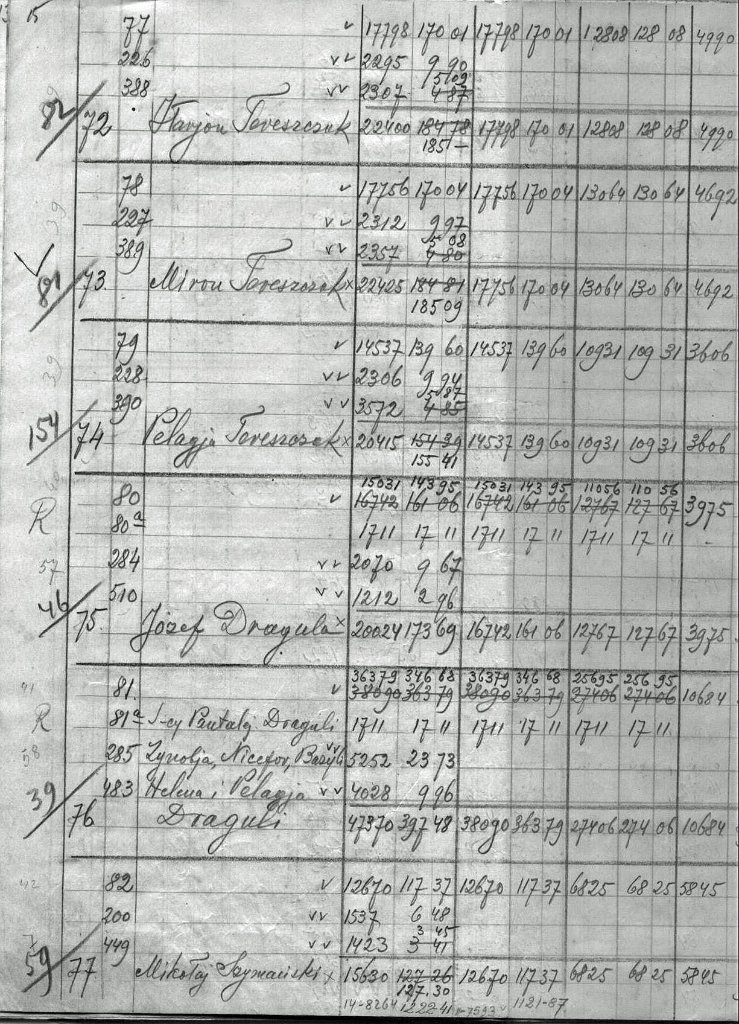 15
77 v 17798 170 01 17798 170 01 12808 128 08 4990
226 vv 2295 9 90
5 09
388 vv 2307 4 87
82 72 Harjon Tereszczuk 22400 184 78 17798 170 01 12808 128 08 4990
185 —
78 v 17756 170 04 17756 170 04 13064 130 64 4692
39
227 vv 2312 9 97
5 08
389 vv 2357 4 80
81 73. Miron Tereszczuk x 22425 184 81 17756 170 04 13064 130 64 4692
185 09
79 v 14537 139 60 14537 139 60 10931 109 31 3606
39
228 vv 2306 9 94
5 87
390 vv 3572 4 85
154 74 Pelagja Tereszczuk x 20415 154 39 14537 139 60 10931 109 31 3606
155 41
15031 143 95 15031 143 95 11056 110 56
80 v 16742 161 06 16742 161 06 12767 127 67 3975
R 80a 1711 17 11 1711 17 11 1711 17 11
57 284 vv 2070 9 67
510 vv 1212 2 96
46 75. Józef Dragula x 20024 173 69 16742 161 06 12767 127 67 3975
36379 346 68 36379 346 68 25695 256 95
81. v 38090 363 79 38090 363 79 27406 274 06 10684
R 81a S-cy Pantalej Draguli 1711 17 11 1711 17 11 1711 17 11
58 285 Nicefor, Bazyli vv 5252 23 73
483 Helena i Pelagja vv 4028 9 96
39 76 Draguli 47370 397 48 38090 363 79 27406 274 06 10684
82 v 12670 117 37 12670 117 37 6825 68 25 5845
200 vv 1537 6 48
3 45
449 vv 1423 3 41
59 77 Mikołaj Szymański x 15630 127 26 12670 117 37 6825 68 25 5845
127.30
1222 41 1121-87